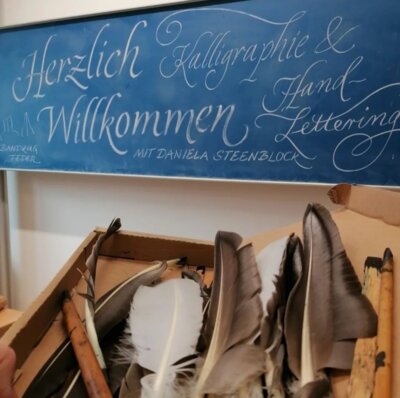 Herzlich
Willkommen
Kalligraphie &
Hand-
Lettering
MIT DANIELA STEENBLOCK
BANDZUG
FEDER